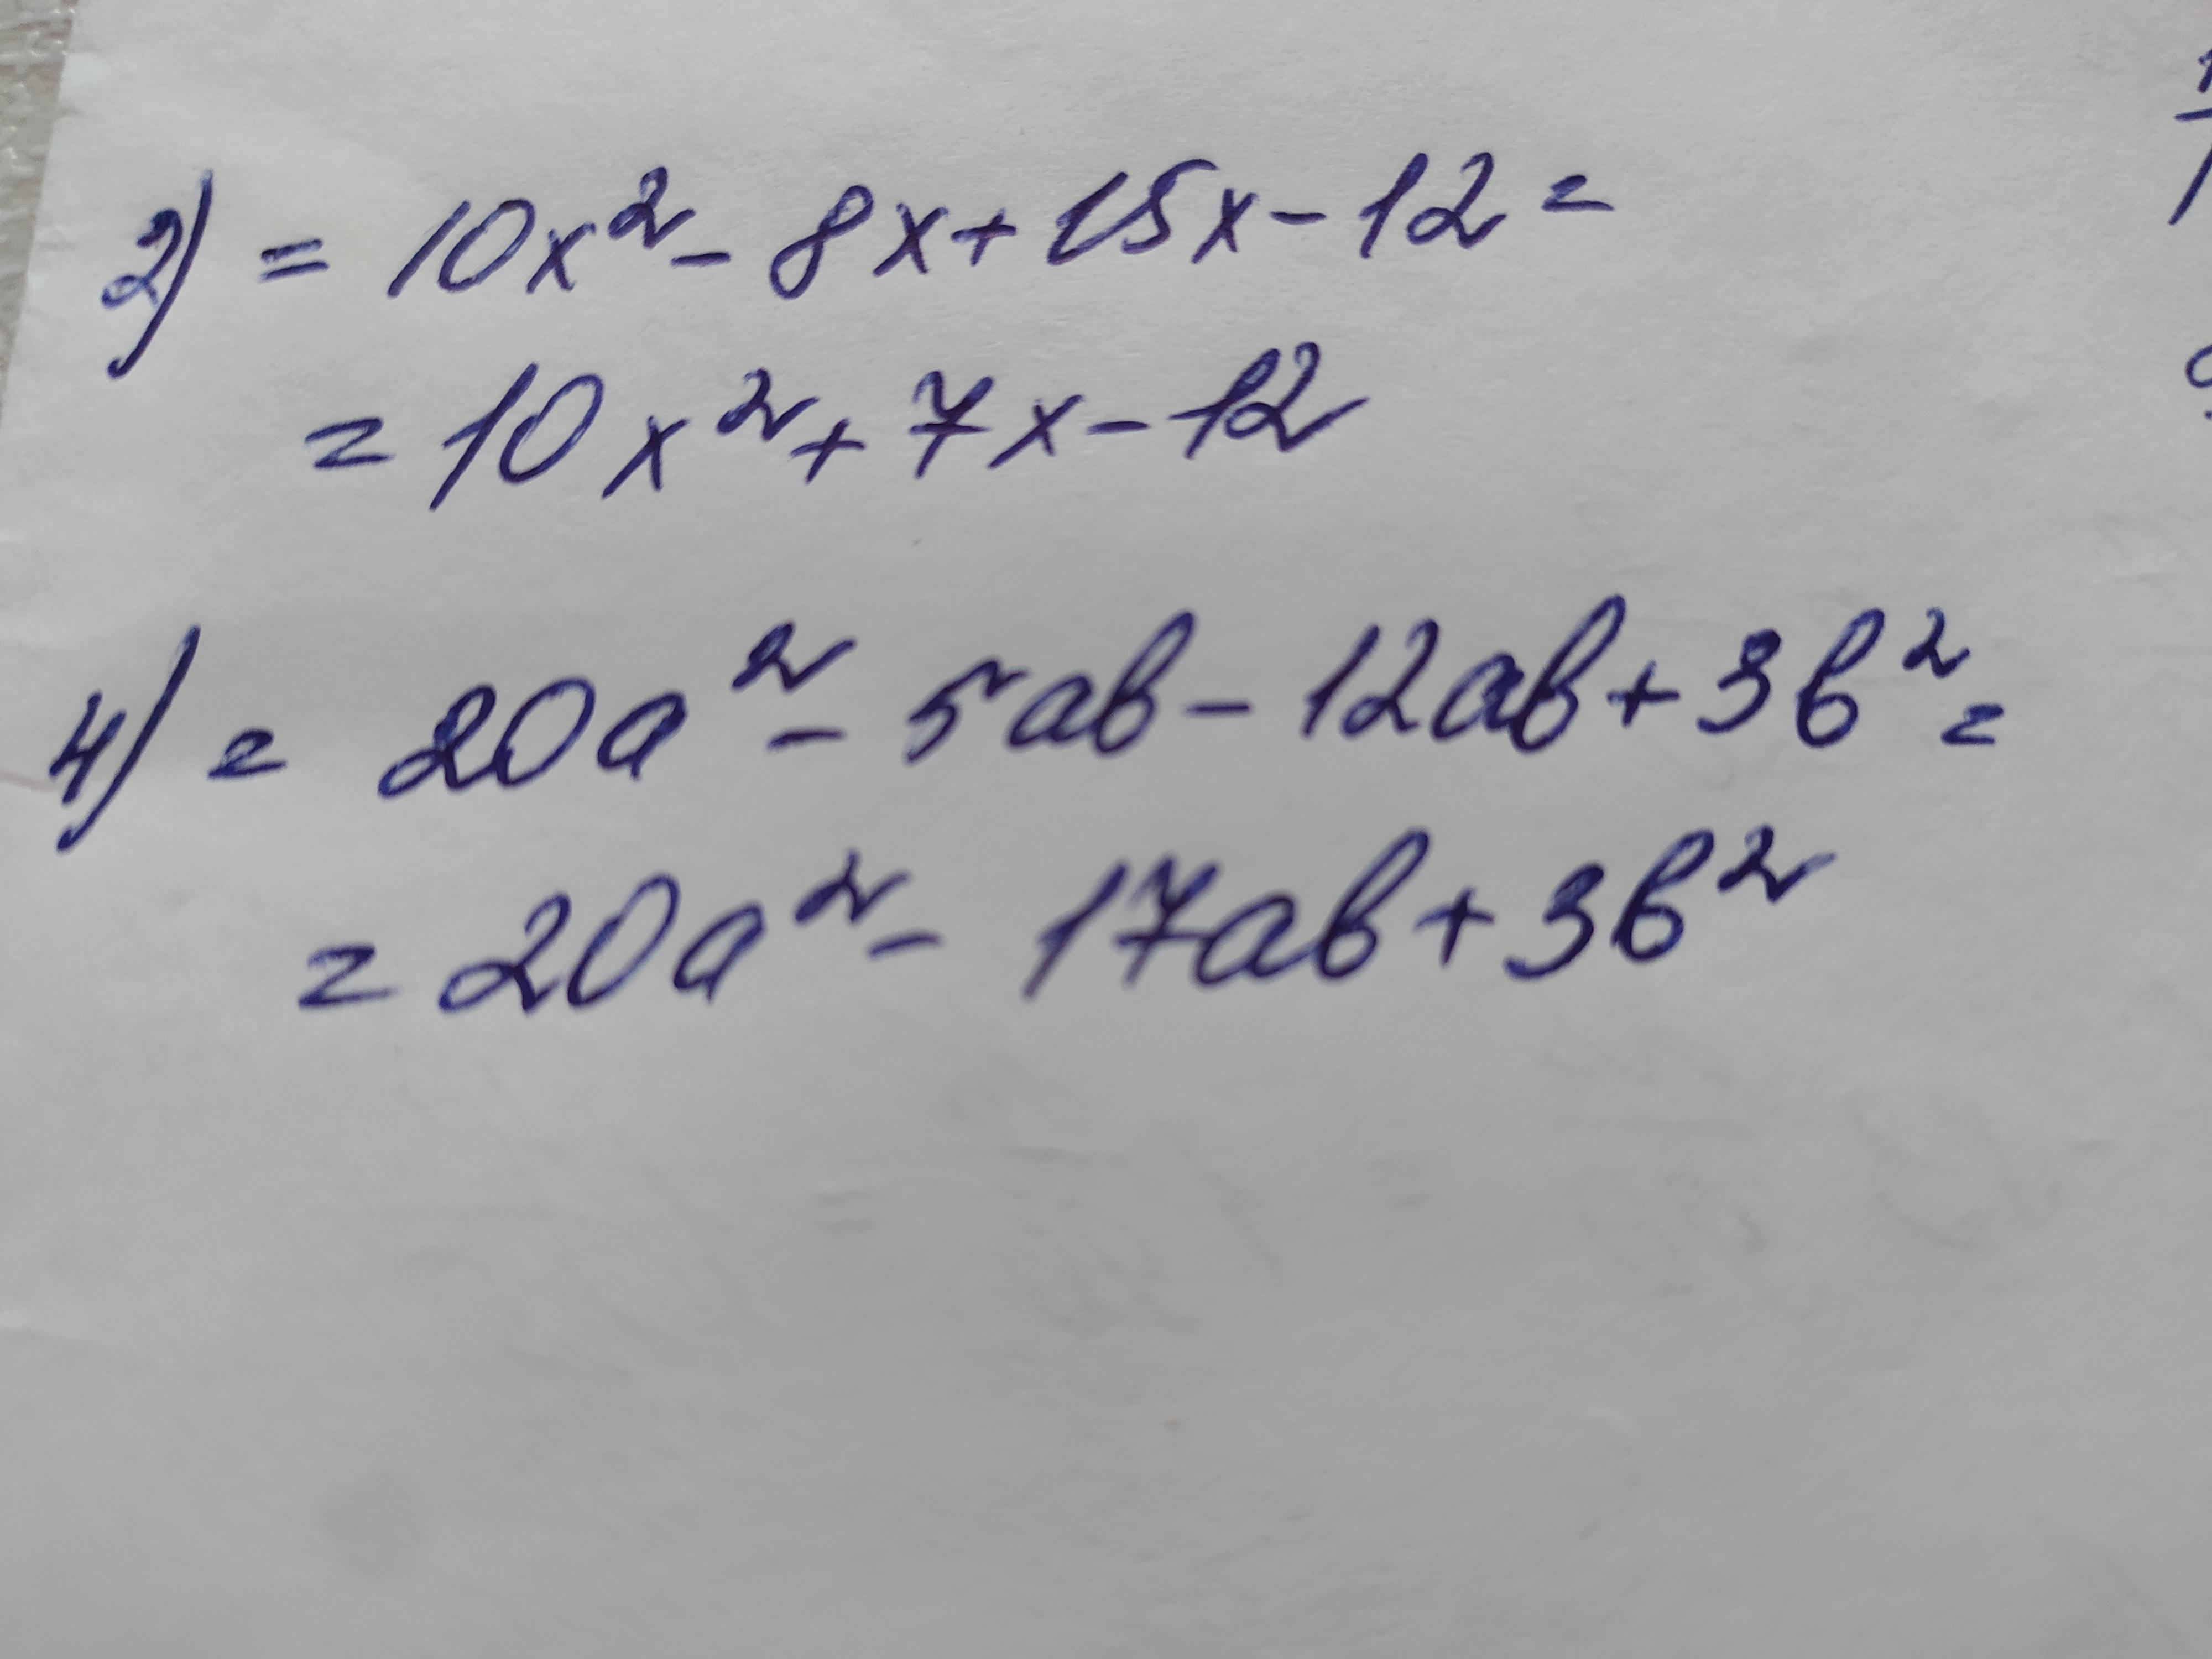 2) = 10x² - 8x + 15x - 12 =
= 10x² + 7x - 12
4) = 20a² - 5ab - 12ab + 3b² =
= 20a² - 17ab + 3b²